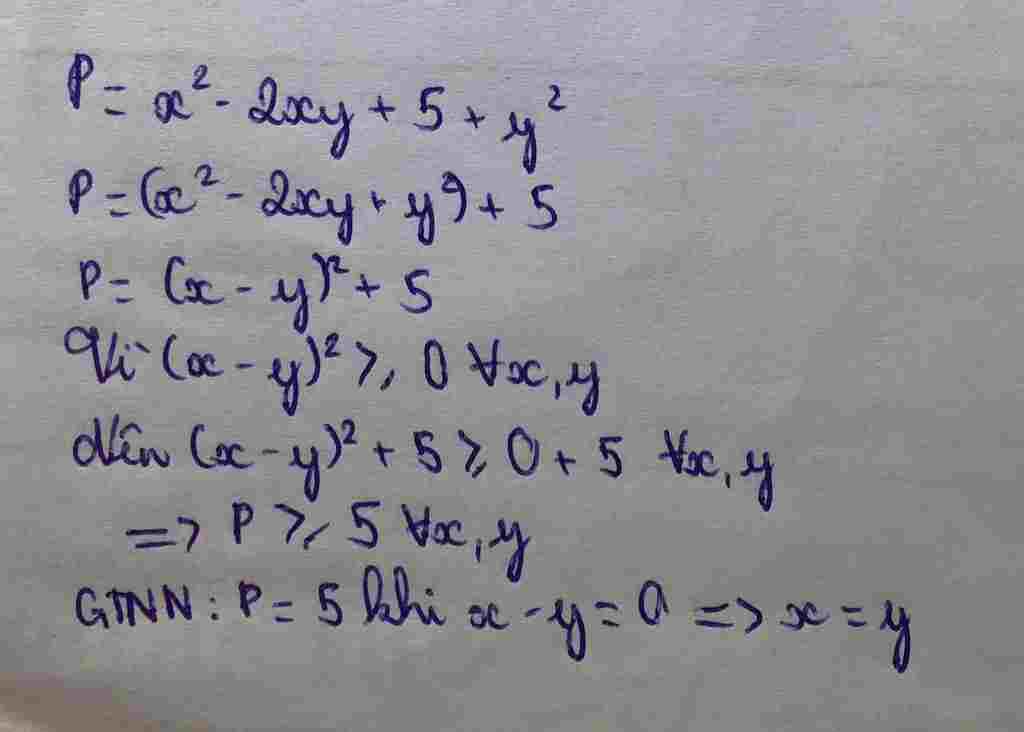 P = x² - 2xy + 5 + y²
P = (x² - 2xy + y²) + 5
P = (x - y)² + 5
Vì (x - y)² ≥ 0 ∀x, y
Nên (x - y)² + 5 ≥ 0 + 5 ∀x, y
=> P ≥ 5 ∀x, y
GTNN: P = 5 khi x - y = 0 => x = y